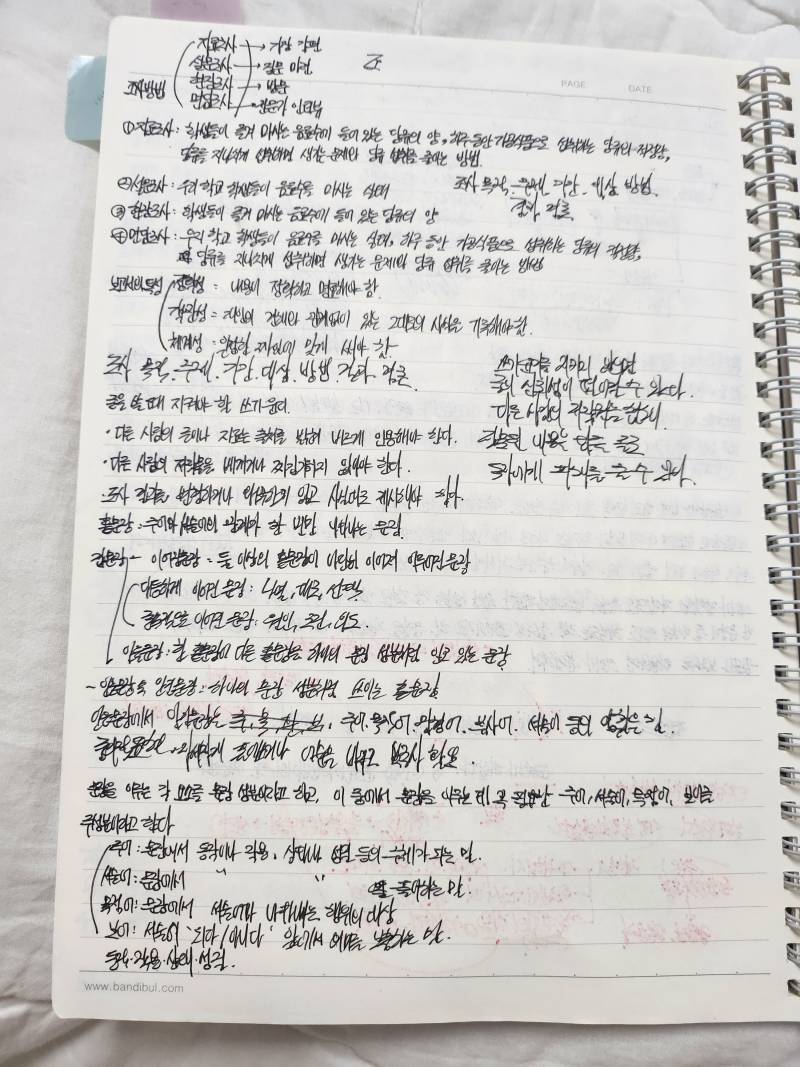 자료조사 → 가장 간편
설문조사 → 질문
현장조사 → 방문
면담조사 → 전문가 인터뷰
조사방법
PAGE DATE
① 자료조사 : 학생들이 즐겨 마시는 음료수에 들어 있는 당류의 양, 하루 동안 가공식품으로 섭취하는 당류의 적정량,
당류를 지나치게 섭취하면 생기는 문제와 당류 섭취를 줄이는 방법.
② 설문조사 : 우리 학교 학생들이 음료수를 마시는 실태
조사 목적, 주제, 기간, 대상, 방법,
결과, 결론
③ 현장조사 : 학생들이 즐겨 마시는 음료수에 들어 있는 당류의 양
④ 면담조사 : 우리 학교 학생들이 음료수를 마시는 실태, 하루 동안 가공식품으로 섭취하는 당류의 적정량,
당류를 지나치게 섭취하면 생기는 문제와 당류 섭취를 줄이는 방법
보고서의 특성 정확성 : 내용이 정확하고 명료해야 함.
객관성 : 자신의 견해와 관계없이 있는 그대로의 사실을 기록해야 함.
체계성 : 일정한 짜임에 맞게 써야 함
조사 목적, 주제, 기간, 대상, 방법, 결과, 결론
쓰기 윤리를 지키지 않으면
글의 신뢰성이 떨어질 수 있다.
다른 사람의 저작권을 침해
잘못된 내용을 담은 글로
독자에게 피해를 줄 수 있다.
글을 쓸 때 지켜야 할 쓰기 윤리
· 다른 사람의 글이나 자료는 출처를 밝혀 바르게 인용해야 한다.
· 다른 사람의 저작물을 베끼거나 짜깁기하지 않아야 한다.
· 조사 결과를 변경하거나 왜곡하지 않고 사실대로 제시해야 한다.
홑문장 : 주어와 서술어의 관계가 한 번만 나타나는 문장.
겹문장 - 이어진문장 : 둘 이상의 홑문장이 나란히 이어져 이루어진 문장
대등하게 이어진 문장 : 나열, 대조, 선택.
종속적으로 이어진 문장 : 원인, 조건, 의도.
안은문장 : 한 홑문장이 다른 홑문장을 하나의 문장 성분처럼 안고 있는 문장
~안은문장 속 안긴문장 : 하나의 문장 성분처럼 쓰이는 홑문장
안은문장에서 안긴문장은 주어, 목적어, 관형어, 부사어, 서술어 등의 역할을 함.
문장을 이루는 각 요소를 문장 성분이라고 하고, 이 중에서 문장을 이루는 데 꼭 필요한 주어, 서술어, 목적어, 보어를
주성분이라고 한다
주어 : 문장에서 동작이나 작용, 상태나 성질 등의 주체가 되는 말.
서술어 : 문장에서 " " 을 풀이하는 말.
목적어 : 문장에서 서술어가 나타내는 행위의 대상
보어 : 서술어 '되다/아니다' 앞에서 의미를 보충하는 말.
동작·작용·상태·성질.
www.bandibul.com